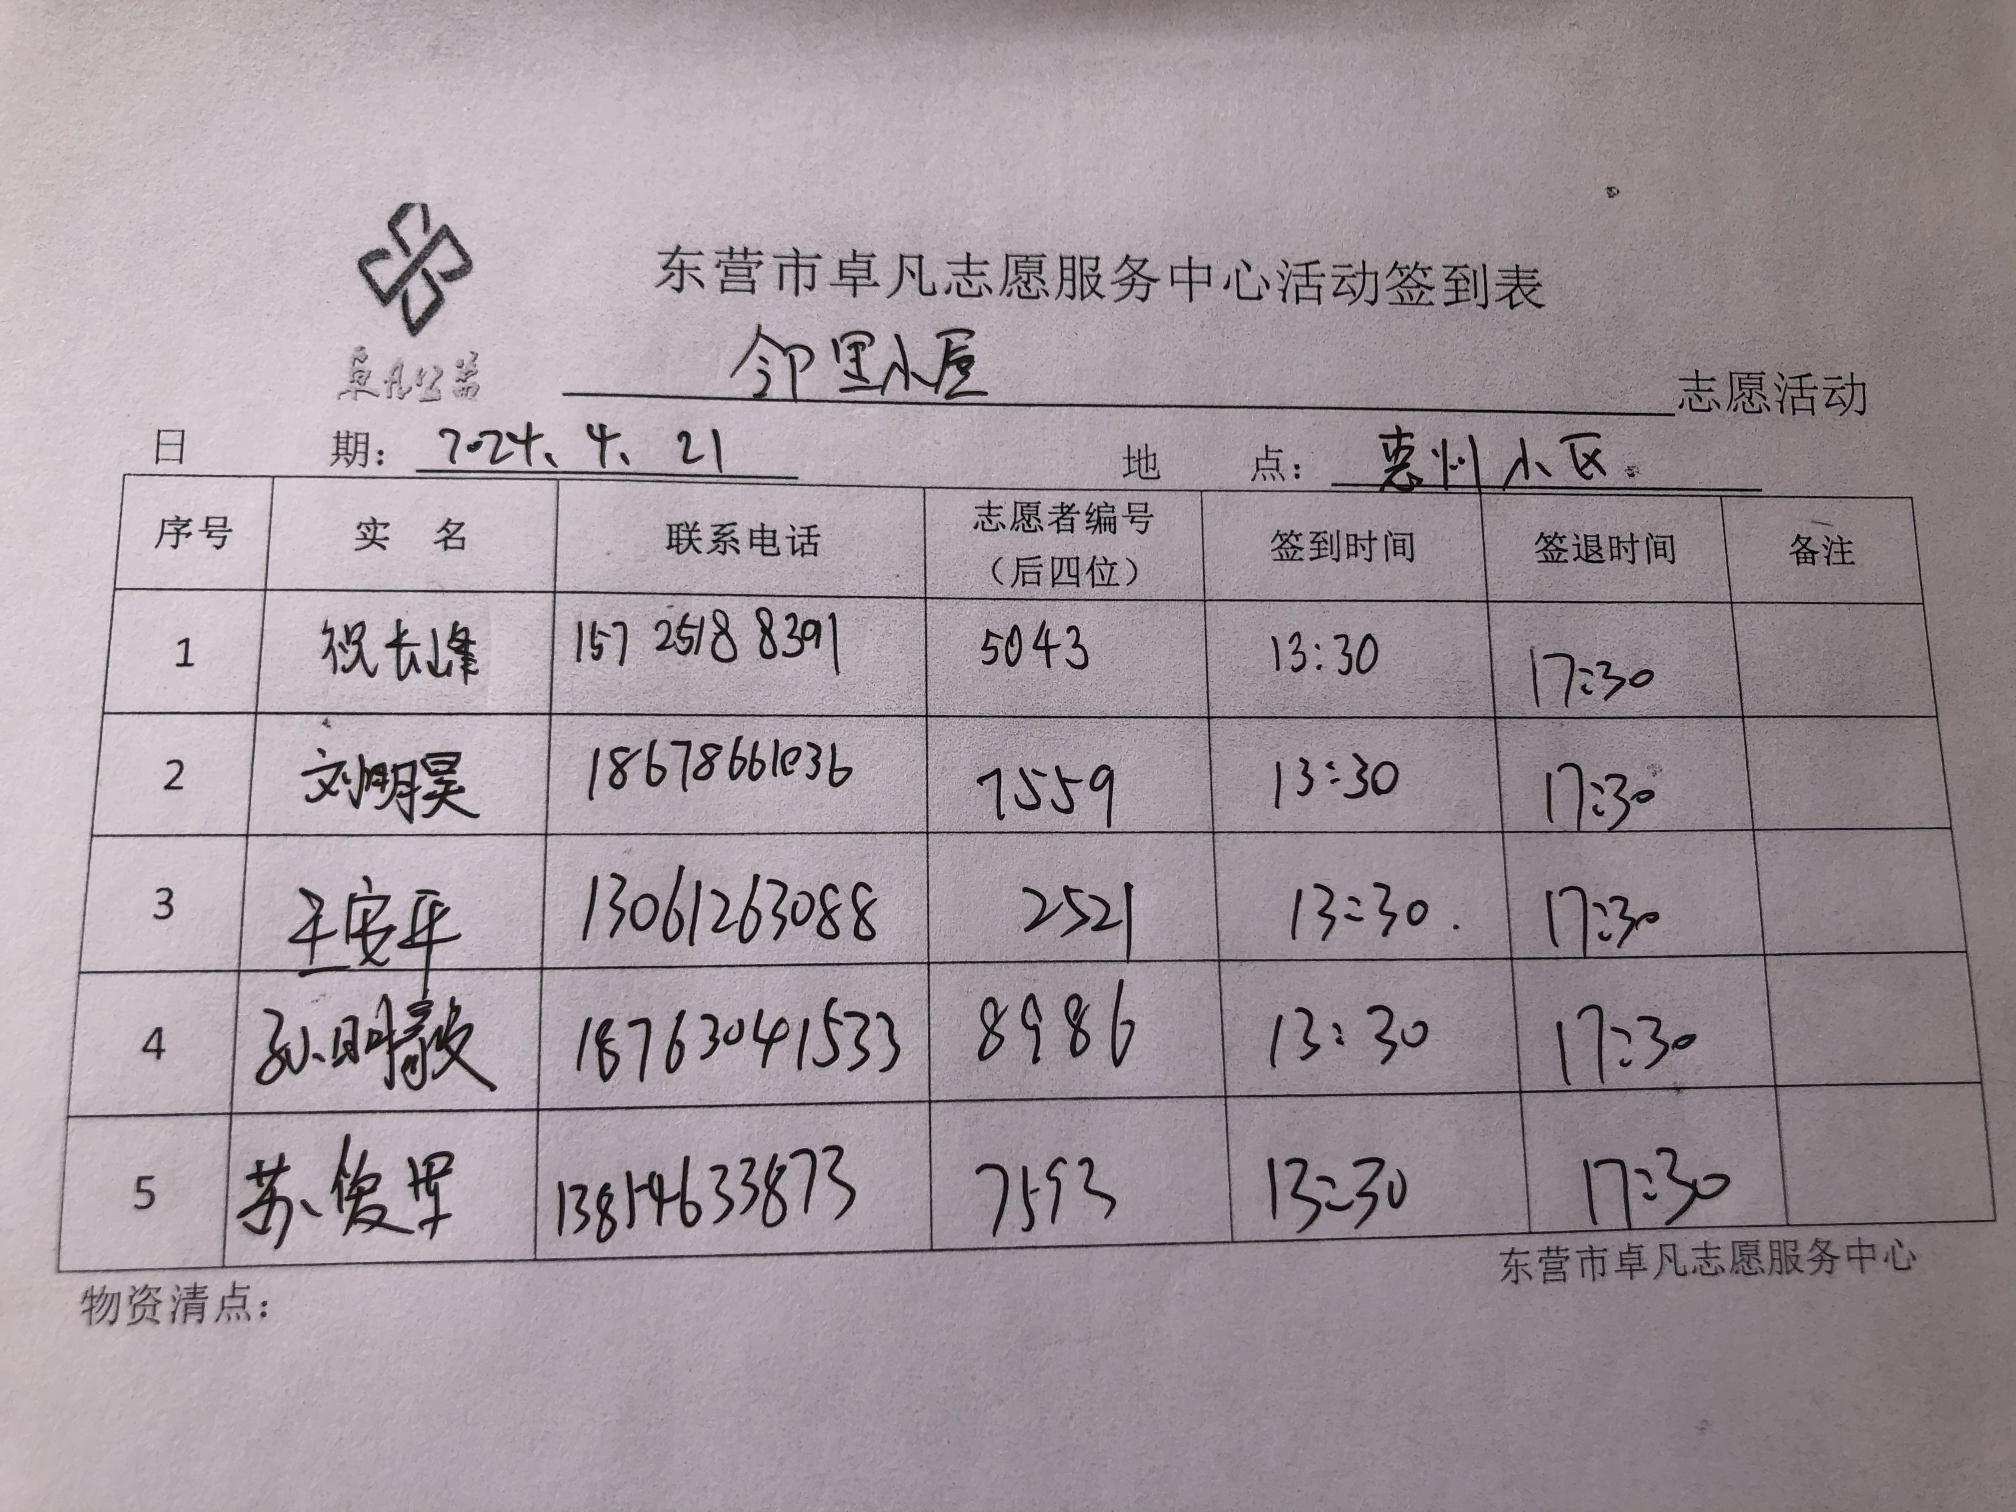 东营市卓凡志愿服务中心活动签到表
卓凡公益
邻里小屋 志愿活动
日 期： 2024、4、21 地 点： 惠州小区.
序号 实 名 联系电话 志愿者编号（后四位） 签到时间 签退时间 备注
1 祝长峰 157 2518 8391 5043 13:30 17:30
2 刘明昊 18678661036 7559 13:30 17:30
3 王安平 13061263088 2521 13:30. 17:30
4 孙明 18763041533 8986 13:30 17:30
5 苏俊军 13854633873 7593 13:30 17:30
东营市卓凡志愿服务中心
物资清点：